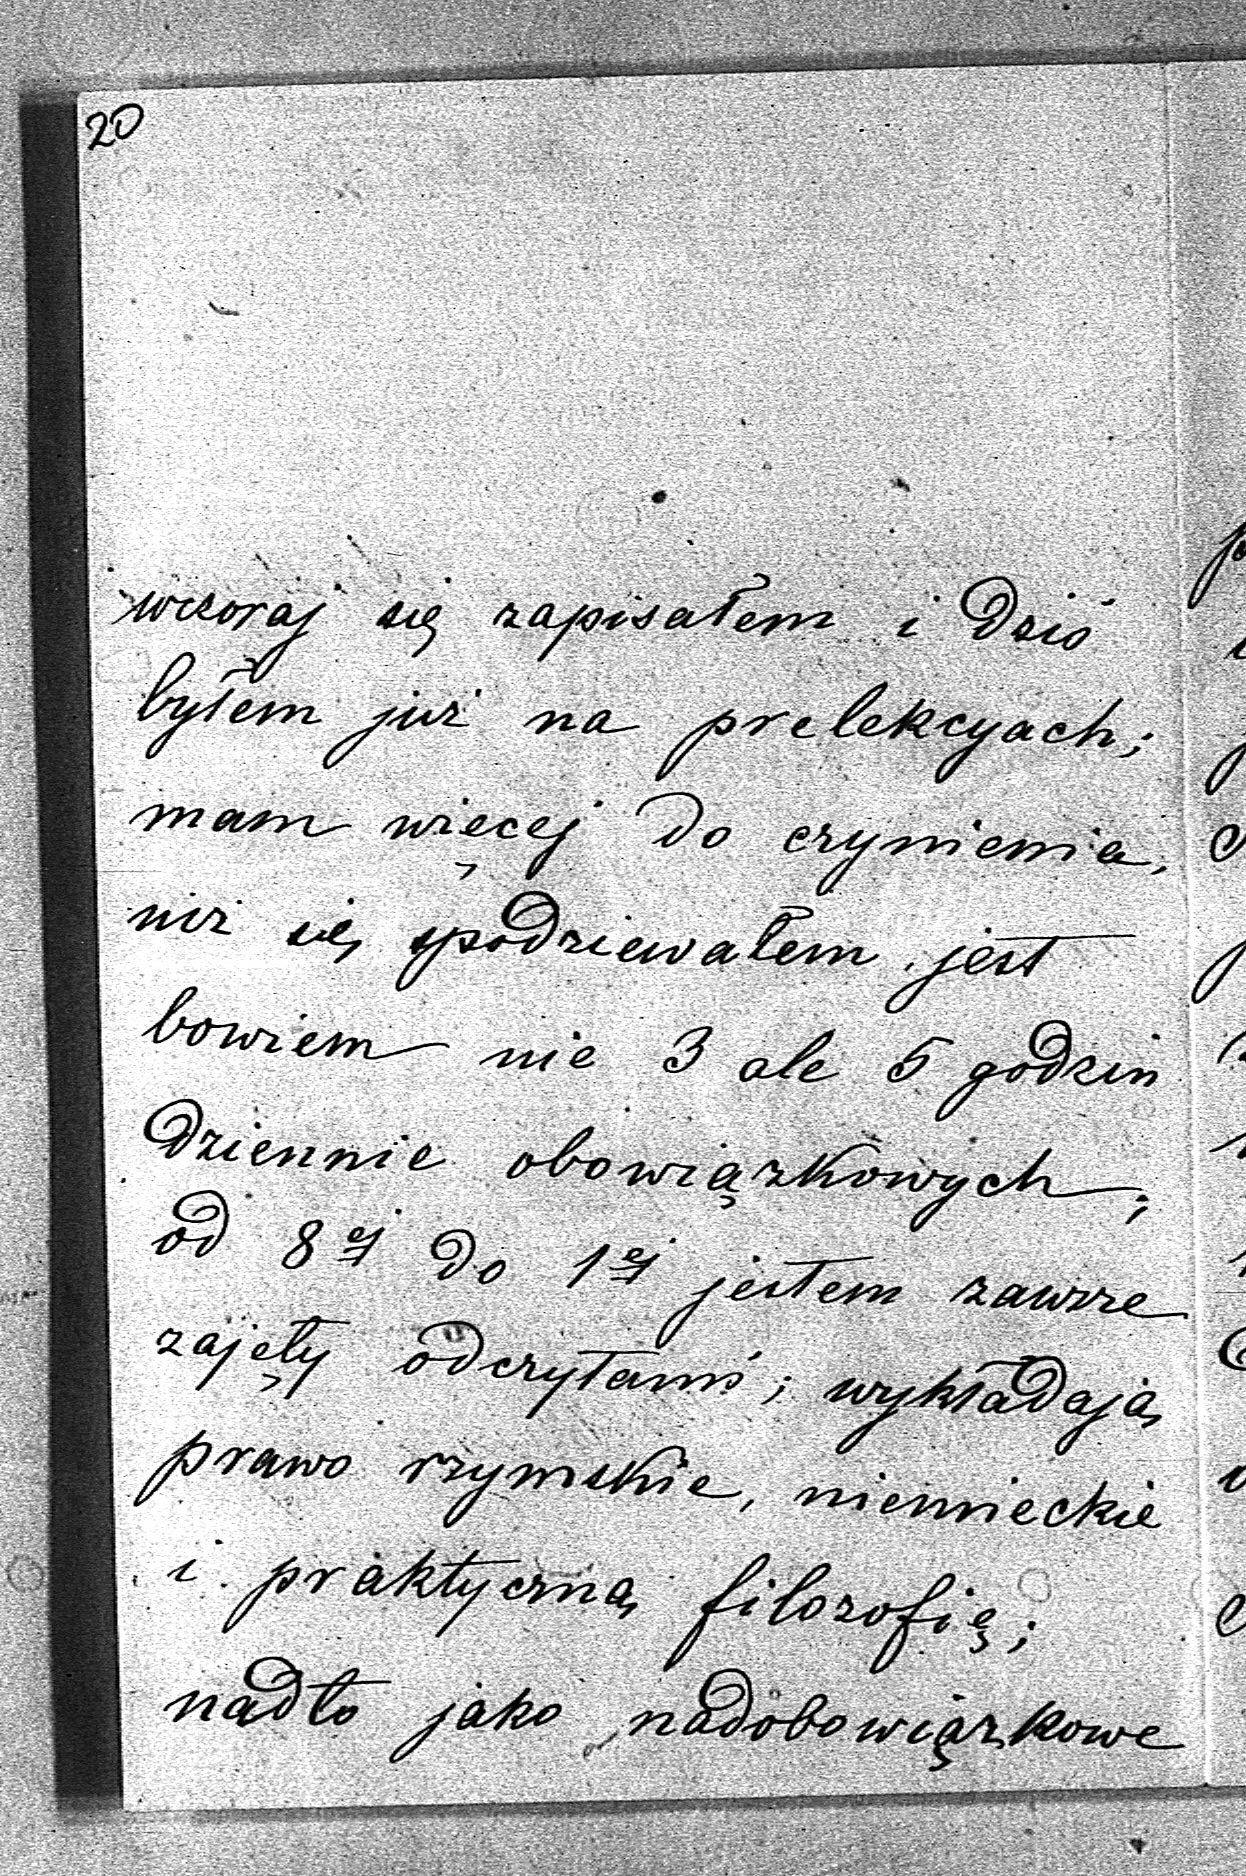 20
wczoraj się zapisałem i dziś
byłem już na prelekcyach;
mam więcej do czynienia,
niż się spodziewałem, jest
bowiem nie 3 ale 5 godzin
dziennie obowiązkowych;
od 8ej do 1ej jestem zawsze
zajęty odczytami; wykładają
prawo rzymskie, niemieckie
i praktyczną filozofię;
nadto jako nadobowiązkowe